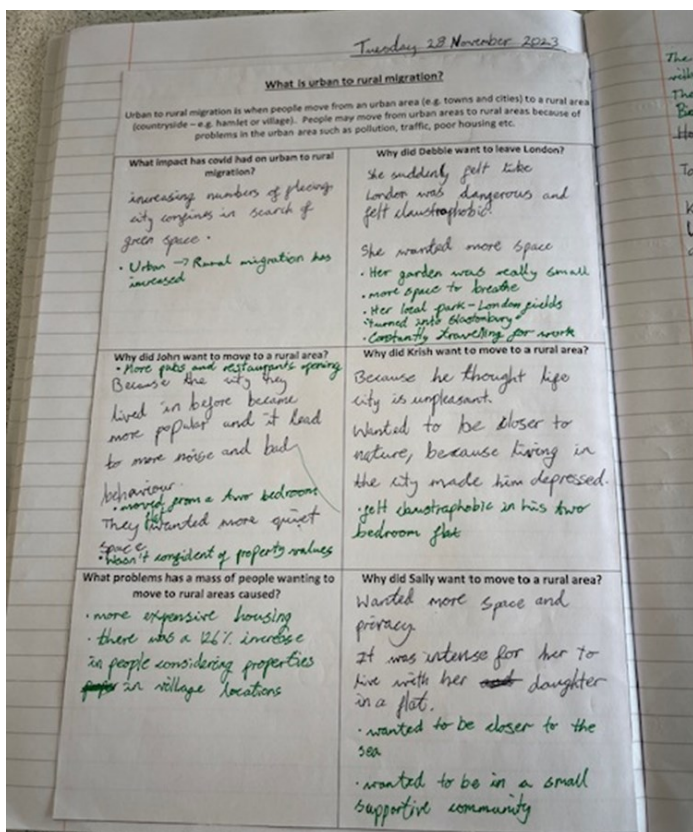 Tuesday 28 November 2023
What is urban to rural migration?
Urban to rural migration is when people move from an urban area (e.g. towns and cities) to a rural area
(countryside – e.g. hamlet or village). People may move from urban areas to rural areas because of
problems in the urban area such as pollution, traffic, poor housing etc.
What impact has covid had on urban to rural
migration?
increasing numbers of
city confines in search of
green space.
• Urban → Rural migration has
increased
Why did Debbie want to leave London?
She suddenly felt like
London was dangerous and
felt claustrophobic.
She wanted more space
• Her garden was really small
• more space to breathe
• Her local park - London fields
turned into Glastonbury
• Constantly travelling for work
Why did John want to move to a rural area?
• More pubs and restaurants opening
Because the city they
lived in before became
more popular and it lead
to more noise and bad
behaviour.
• moved from a two bedroom
flat
They wanted more quiet
space
• Wasn't confident of property values
Why did Krish want to move to a rural area?
Because he thought life
city is unpleasant.
Wanted to be closer to
nature, because living in
the city made him depressed.
• felt claustraphobic in his two
bedroom flat
What problems has a mass of people wanting to
move to rural areas caused?
• more expensive housing
• there was a 126% increase
in people considering properties
in village locations
Why did Sally want to move to a rural area?
Wanted more space and
privacy
It was intense for her to
live with her daughter
in a flat.
• wanted to be closer to the
sea
• wanted to be in a small
supportive community
The